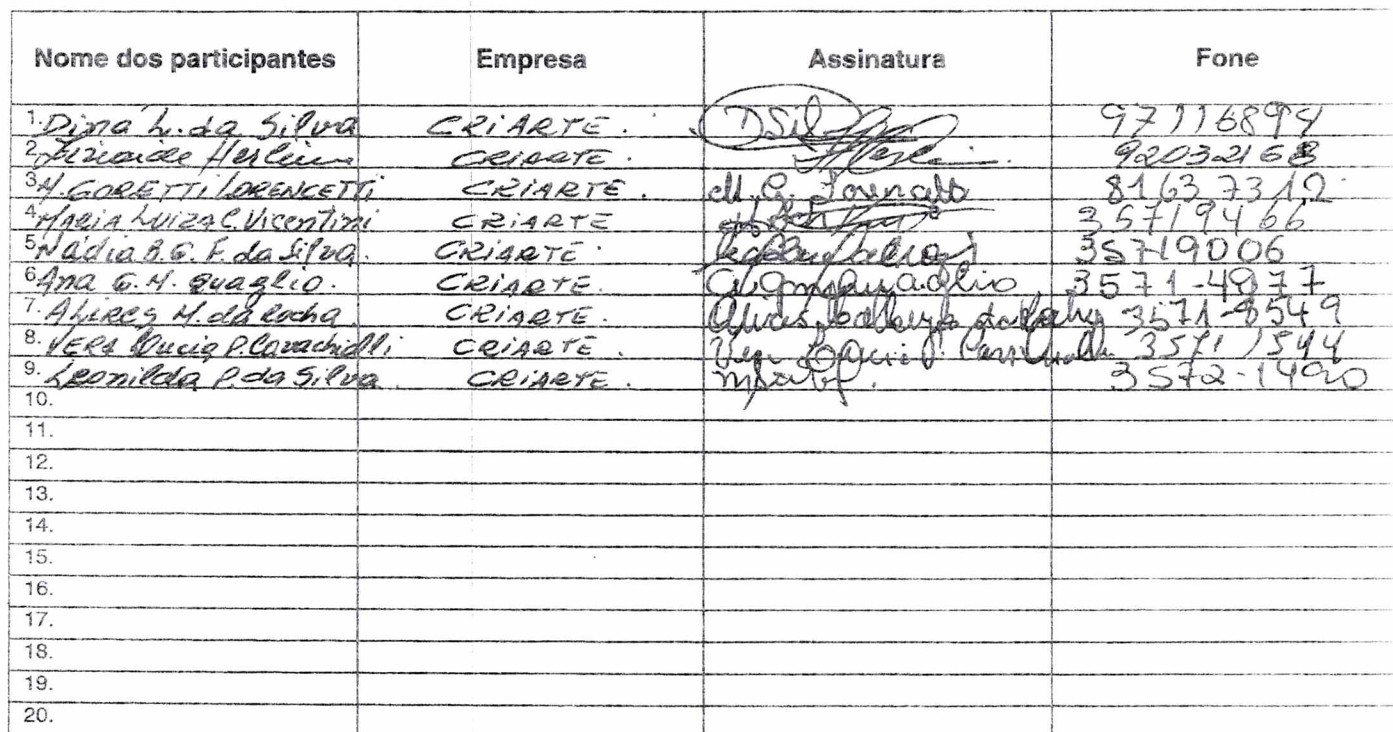 Nome dos participantes Empresa Assinatura Fone
1. Dina L. da Silva CRIARTE. DSil 97116894
2. CRIARTE. 92032168
3. M. GORETTI LORENCETTI CRIARTE. M. G. Lorencetti 81637312
4. MARIA LUIZA C. Vicentini CRIARTE 35719466
5. Nádia B. G. F. da Silva. CRIARTE 35719006
6. Ana G. M. Quaglio. CRIARTE. 3571-4977
7. Alires M. da Rocha CRIARTE. Alires da Rocha 3571-8549
8. VERA Lucia P. Cavachiolli CRIARTE. Vera Lucia P. 3571 1544
9. Leonilda P. da Silva. CRIARTE. 3572-1490
10.
11.
12.
13.
14.
15.
16.
17.
18.
19.
20.